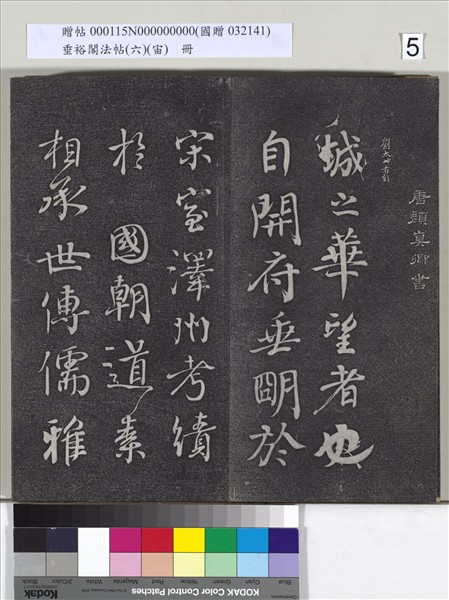 贈帖 000115N000000000(國贈 032141)
垂裕閣法帖(六)(宙)　冊
5
唐顏真卿書
劉太沖者彭
城之華望者也
自開府垂明於
宋室澤州考績
於國朝道素
相承世傳儒雅
Blue Cyan Green Yellow Red Magenta White 3/Color Black
Kodak
KODAK Color Control Patches